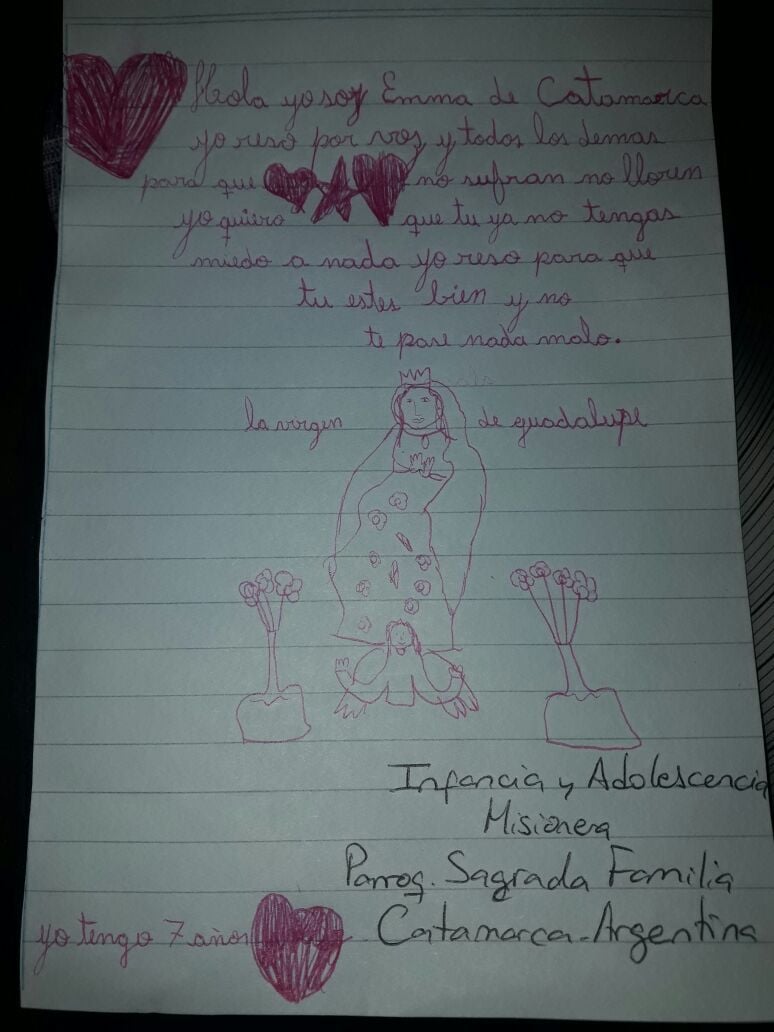 Hola yo soy Emma de Catamarca
yo reso por vos y todos los demas
para que no sufran no lloren
yo quiero que tu ya no tengas
miedo a nada yo reso para que
tu estes bien y no
te pase nada malo.
la virgen de guadalupe
Infancia y Adolescencia
Misionera
Parroq. Sagrada Familia
Catamarca-Argentina
yo tengo 7 años